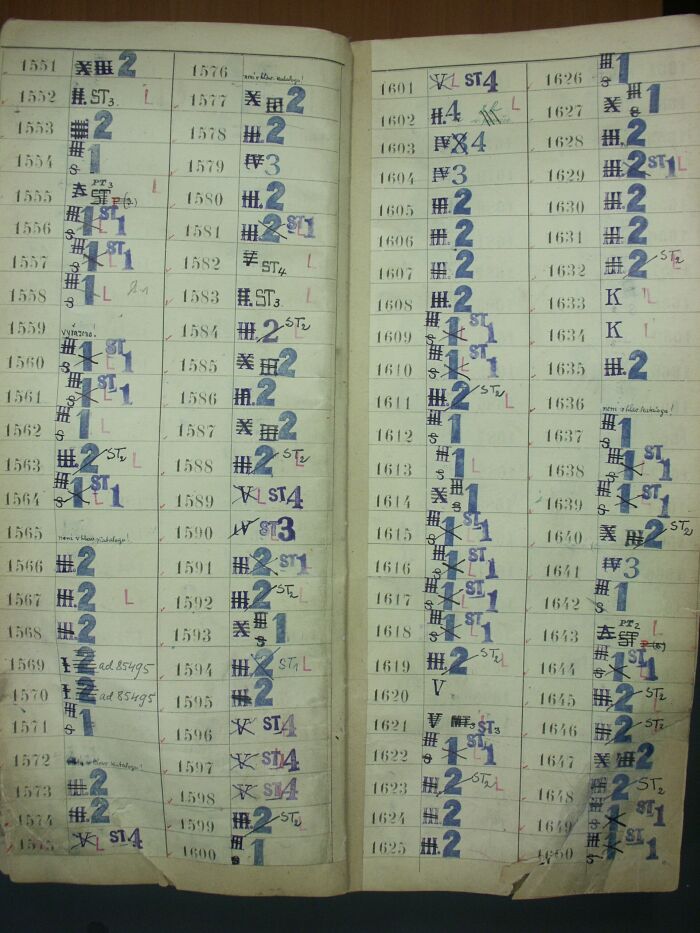 1551 X III 2
1552 II. ST3. L
1553 2
1554 III S 1
1555 A PT3 ST L
1556 III S 1 L ST 1
1557 III S 1 L ST 1
1558 III S 1 L
1559
1560 III S 1 L ST 1
1561 III S 1 L ST 1
1562 III S 1 L
1563 III. 2 ST2 L
1564 III S 1 L ST 1
1565 není v hlav. katalogu!
1566 III. 2
1567 III. 2 L
1568 III. 2
1569 I 2 ad 85495
1570 I 2 ad 85495
1571 III S 1
1572
1573 III. 2
1574 III. 2
1575 V L ST 4
1576 není v hlav. katalogu!
1577 X III 2
1578 III. 2
1579 IV 3
1580 III. 2
1581 III. 2 ST 1 L
1582 V ST4 L
1583 II. ST3. L
1584 III. 2 ST2 L
1585 X III 2
1586 III. 2
1587 X III 2
1588 III. 2 ST2 L
1589 V L ST 4
1590 IV ST 3 L
1591 III. 2 ST 1 L
1592 III. 2 ST2 L
1593 X III S 1
1594 III. 2 ST1 L
1595 III. 2
1596 V ST 4 L
1597 V ST 4 L
1598 V ST 4 L
1599 III. 2 ST2 L
1600 III S 1
1601 V L ST 4
1602 II. 4 L
1603 IV X 4
1604 IV 3
1605 III. 2
1606 III. 2
1607 III. 2
1608 III. 2
1609 III S 1 L ST 1
1610 III S 1 L ST 1
1611 III. 2 ST2 L
1612 III S 1
1613 III S 1 L
1614 X III S 1
1615 III S 1 L ST 1
1616 III S 1 L ST 1
1617 III S 1 L ST 1
1618 III S 1 L ST 1
1619 III. 2 ST2 L
1620 V
1621 V ST3 L
1622 III S 1 L ST 1
1623 III. 2 ST2 L
1624 III. 2
1625 III. 2
1626 III S 1
1627 X III S 1
1628 III. 2
1629 III. 2 ST 1 L
1630 III. 2
1631 III. 2
1632 III. 2 ST2 L
1633 K L
1634 K L
1635 III. 2
1636 není v hlav. katalogu!
1637 III S 1
1638 III S 1 L ST 1
1639 III S 1 L ST 1
1640 X III 2 ST2 L
1641 IV 3
1642 III S 1
1643 A PT2 ST L
1644 III S 1 L ST 1
1645 III. 2 ST2 L
1646 III. 2 ST2 L
1647 X III 2
1648 III. 2 ST2 L
1649 III S 1 ST 1
1650 III S 1 ST 1